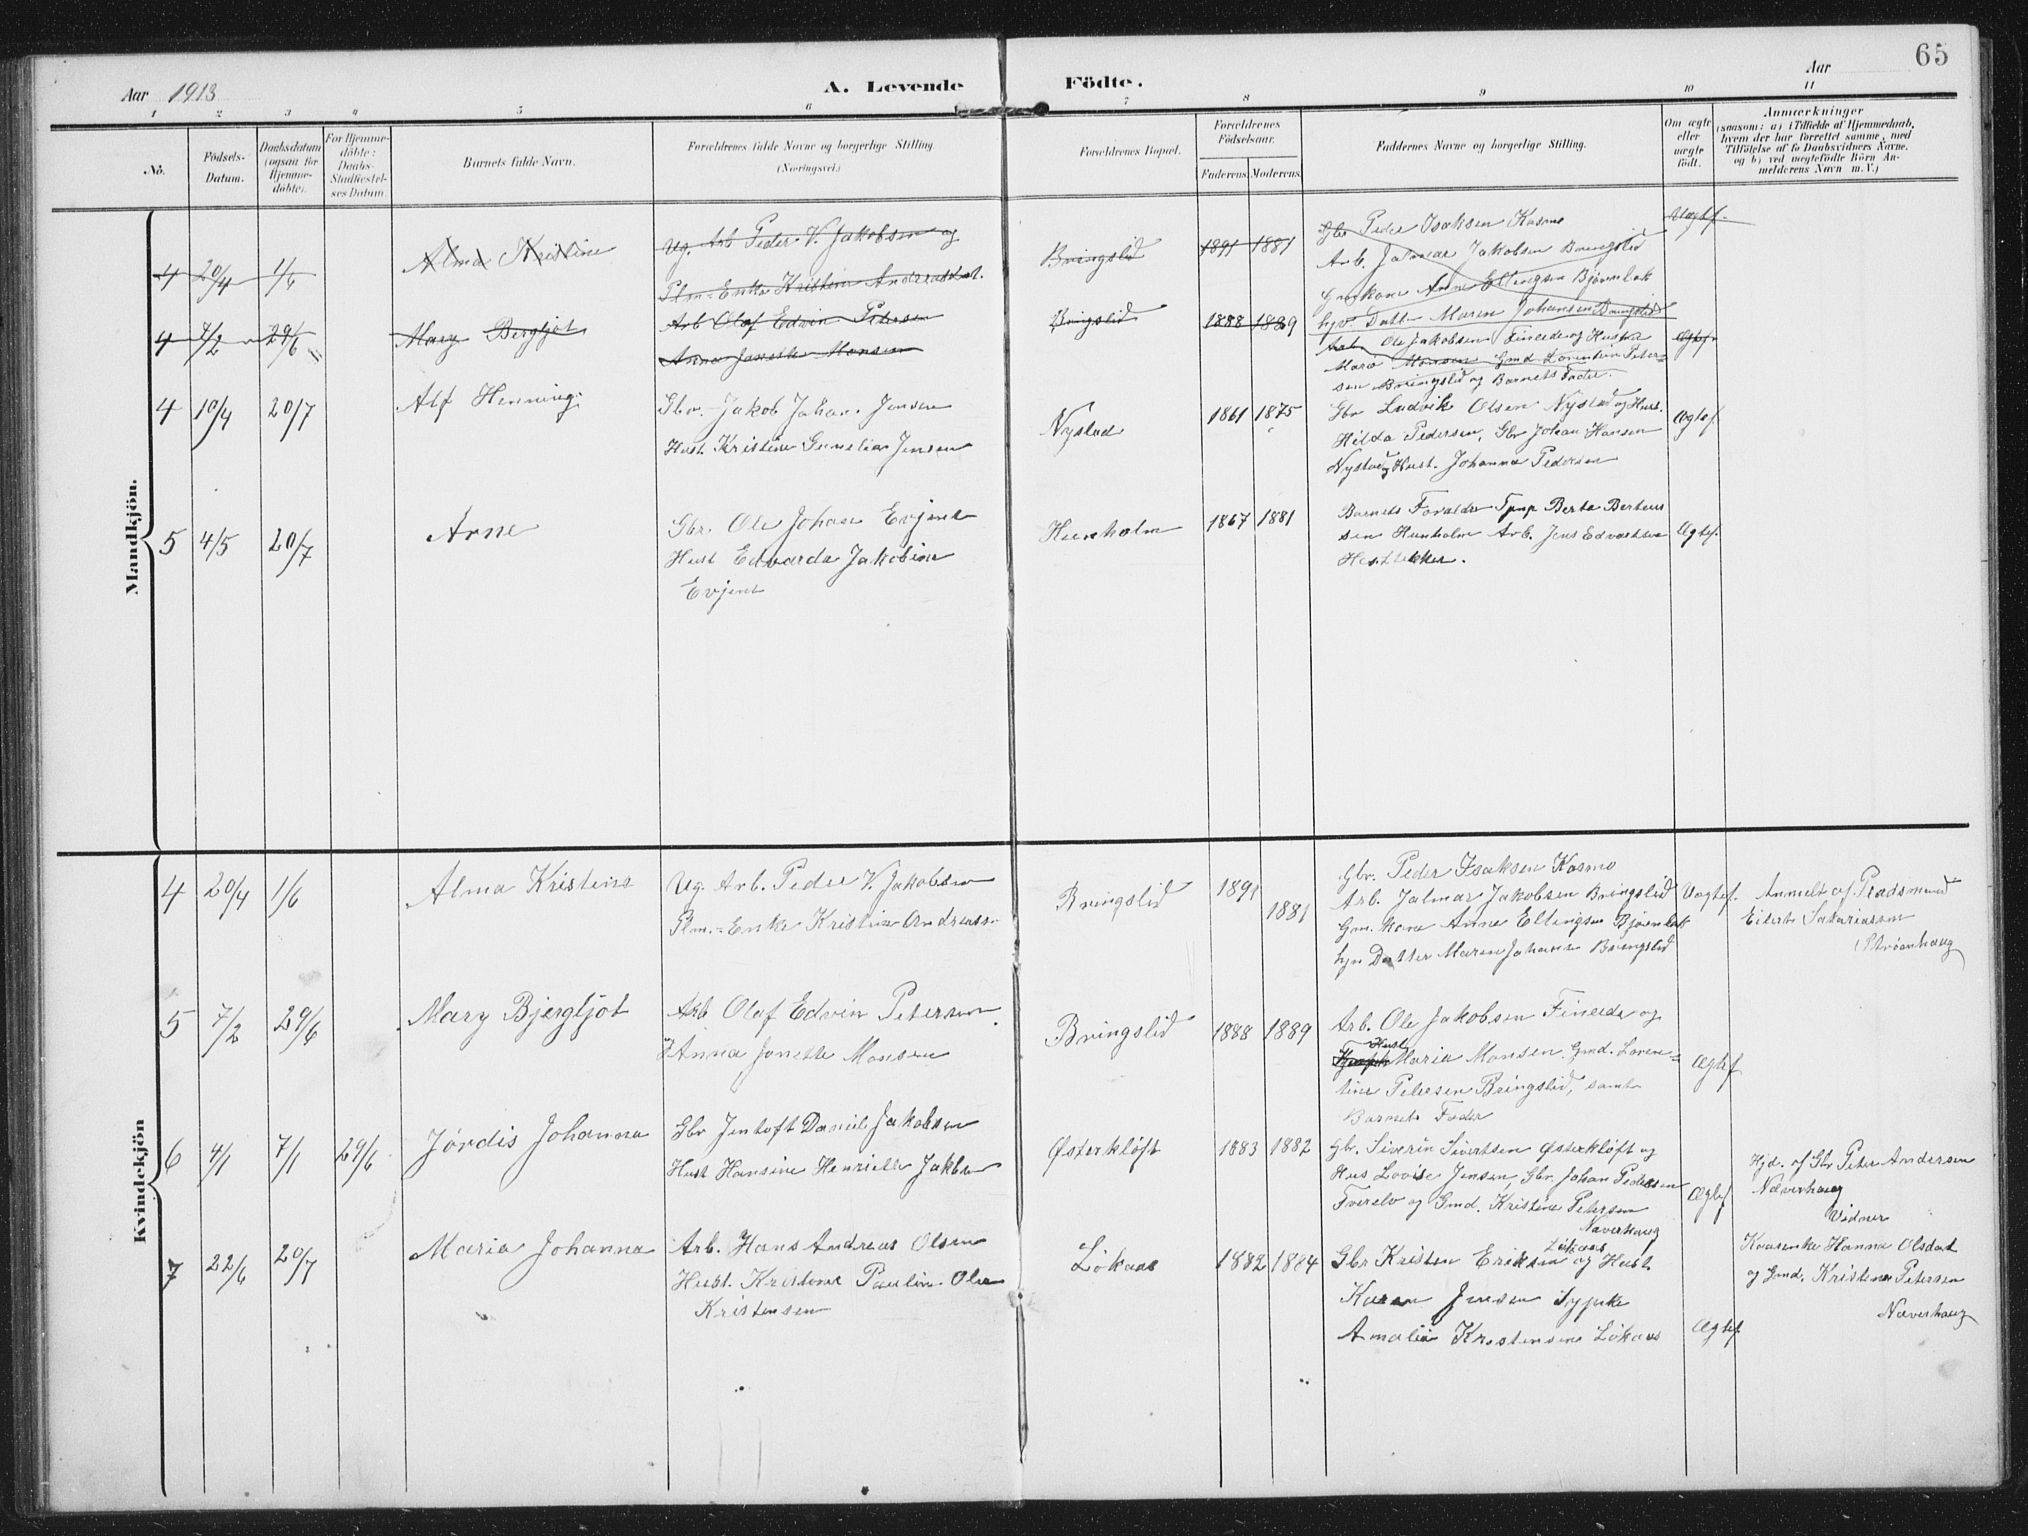 65
Aar 1913
A. Levende
Födte.
Aar
1 2 3 4 5 6 7 8 9 10 11
No.
Födsels-
Datum.
Daabsdatum
(ogsaa for
Hjemme-
döbte).
For Hjemme-
döbte:
Daabs-
Stadfæstel-
ses Datum.
Barnets fulde Navn.
Forældrenes fulde Navne og borgerlige Stilling.
(Næringsvei.)
Forældrenes Bopæl.
Forældrenes
Födselsaar.
Faderens. Moderens.
Faddernes Navne og borgerlige Stilling.
Om ægte
eller
uægte
födt.
Anmærkninger
(saasom: a) i Tilfælde af Hjemmedaab,
hvem der har forrettet samme, med
Tilföielse af to Daabsvidners Navne.
og b) ved uægtefödte Börn An-
melderens Navn m. V.)
Mandkjön.
4 20/4 1/6 Alma Kristine
Ug. Arb Peder V. Jakobsen og
Plm-Enke Kristine Andreasdat.
Bringslid 1891 1881
Gbr Peder Isaksen Kosmo
Arb. Jalmar Jakobsen Bringslid
Gmkone Anne Ellingsen Bjørnbak
hjv. Datt Maren Johansen Bringslid
Uægtef.
4 7/2 29/6 Mary Bergljot
Arb Olaf Edvin Petersen
Anna Janette Monsen
Bringslid 1888 1889
Arb. Ole Jakobsen Fineide og Hustru
Maria Monsen Gmd Lorentine Peter-
sen Bringslid og Barnets Fader.
Ægtef.
4 10/4 20/7 Alf Henning
Gbr. Jakob Johan Jensen
Hust. Kristine Jensen
Nystad 1861 1875
Gbr Ludvik Olsen Nystad og Hust.
Hilda Pedersen, Gbr Johan Hansen
Nystad og Hust. Johanna Pedersen
Ægtef.
5 4/5 20/7 Arne
Gbr. Ole Johan Evjent
Hust Edvarda Jakobine
Evjent
Hunholm 1867 1881
Barnets Foraldre Berta Berteus
sen Hunholm Arb. Jens Edvardsen
Ægtef.
Kvindekjön
4 20/4 1/6 Alma Kristine
Ug. Arb. Peder V. Jakobsen
Plm.-Enke Kristine Andreass.
Bringslid 1891 1881
Gbr. Peder Isaksen Kosmo
Arb. Jalmar Jakobsen Bringslid
Gm. kone Anne Ellingsen Bjørnbak
hjv Datter Maren Johanse Bringslid
Uægtef.
Anmeldt af Pladsmand
Eilert Sakariassen
Strømhaug
5 7/2 29/6 Mary Bjergljot
Arb Olaf Edvin Petersen
Anna Janette Monsen
Bringslid 1888 1889
Arb. Ole Jakobsen Fineide og
Hust
Maria Monsen. Gmd. Loren-
tine Petersen Bringslid, samt
Barnets Fader
Ægtef
6 4/1 7/1 29/6 Jørdis Johanna
Gbr Jentoft Daniel Jakobsen
Hust Hansine Henriette Jakbsen
Østerkløft 1883 1882
Gbr. Siverin Sivertsen Østerkløft og
Hus Lovise Jensen, Gbr. Johan Pedersen
Tverelv og Gmd. Kristine Petersen
Naverhaug
Ægtef
Hjd. af Gbr Peter Andersen
Næverhaug
Vidner
Hanna Olsdat
og Gmd. Kristine Petersen
Næverhaug
7 22/6 20/7 Maria Johanna
Arb. Hans Andreas Olsen
Hust. Kristine Pauline Ole
Kristensen
Løkaas 1882 1884
Løkaas
Gbr Kristen Eriksen og Hust
Karen Jensen Typike
Amalie Kristensene Løkaas
Ægtef